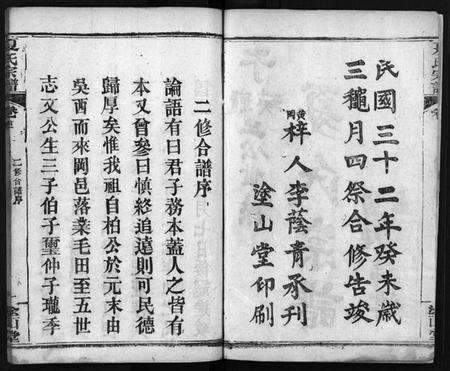 民國三十二年癸未歲
三穐月四祭合修告竣
黄岡梓人李蔭青承刊
塗山堂印刷
二修合譜序
論語有曰君子務本蓋人之皆有
本又曾參曰慎終追遠則可民德
歸厚矣惟我祖自柏公於元末由
吳酉而來岡邑落業毛田至五世
志文公生三子伯子璽仲子瓏季
夏氏宗譜
卷
二修合譜序
塗山堂